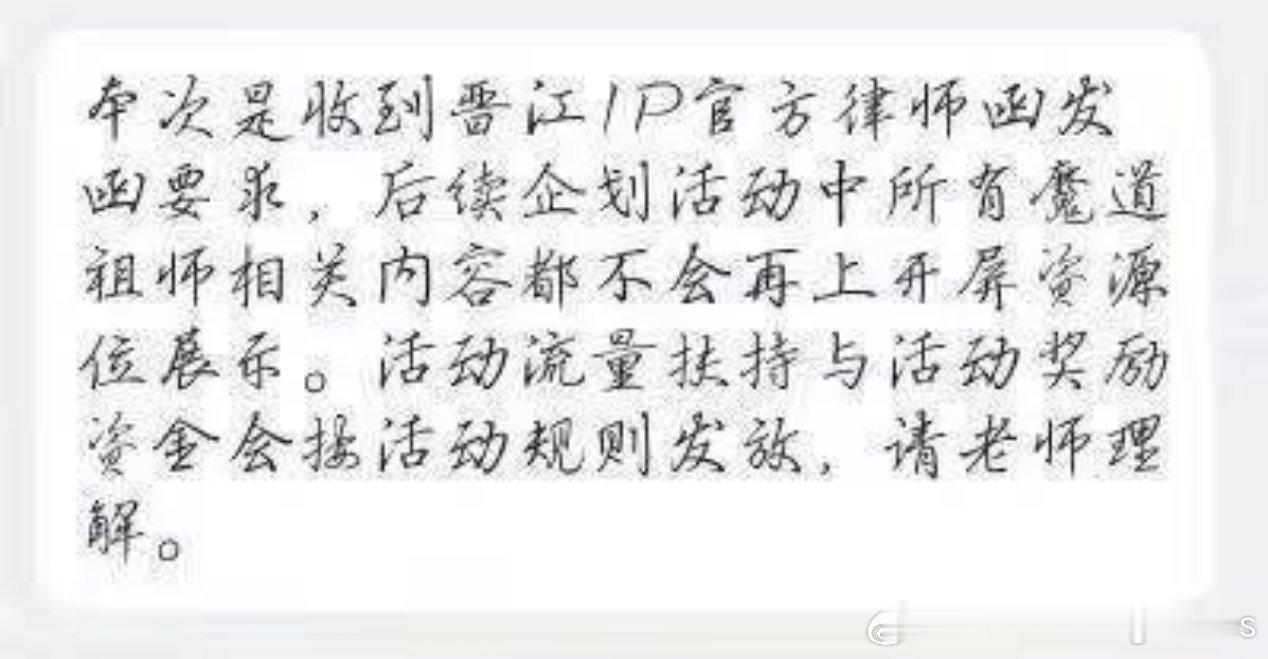 本次是收到晋江IP官方律师函发
函要求，后续企划活动中所有魔道
祖师相关内容都不会再上开屏资源
位展示。活动流量扶持与活动奖励
资金会按活动规则发放，请老师理
解。